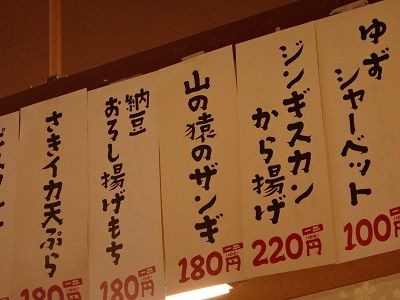 ゆず
シャーベット
100円
ジンギスカン
から揚げ
220円
山の猿のザンギ
180円
納豆
おろし揚げもち
180円
さきイカ天ぷら
180円